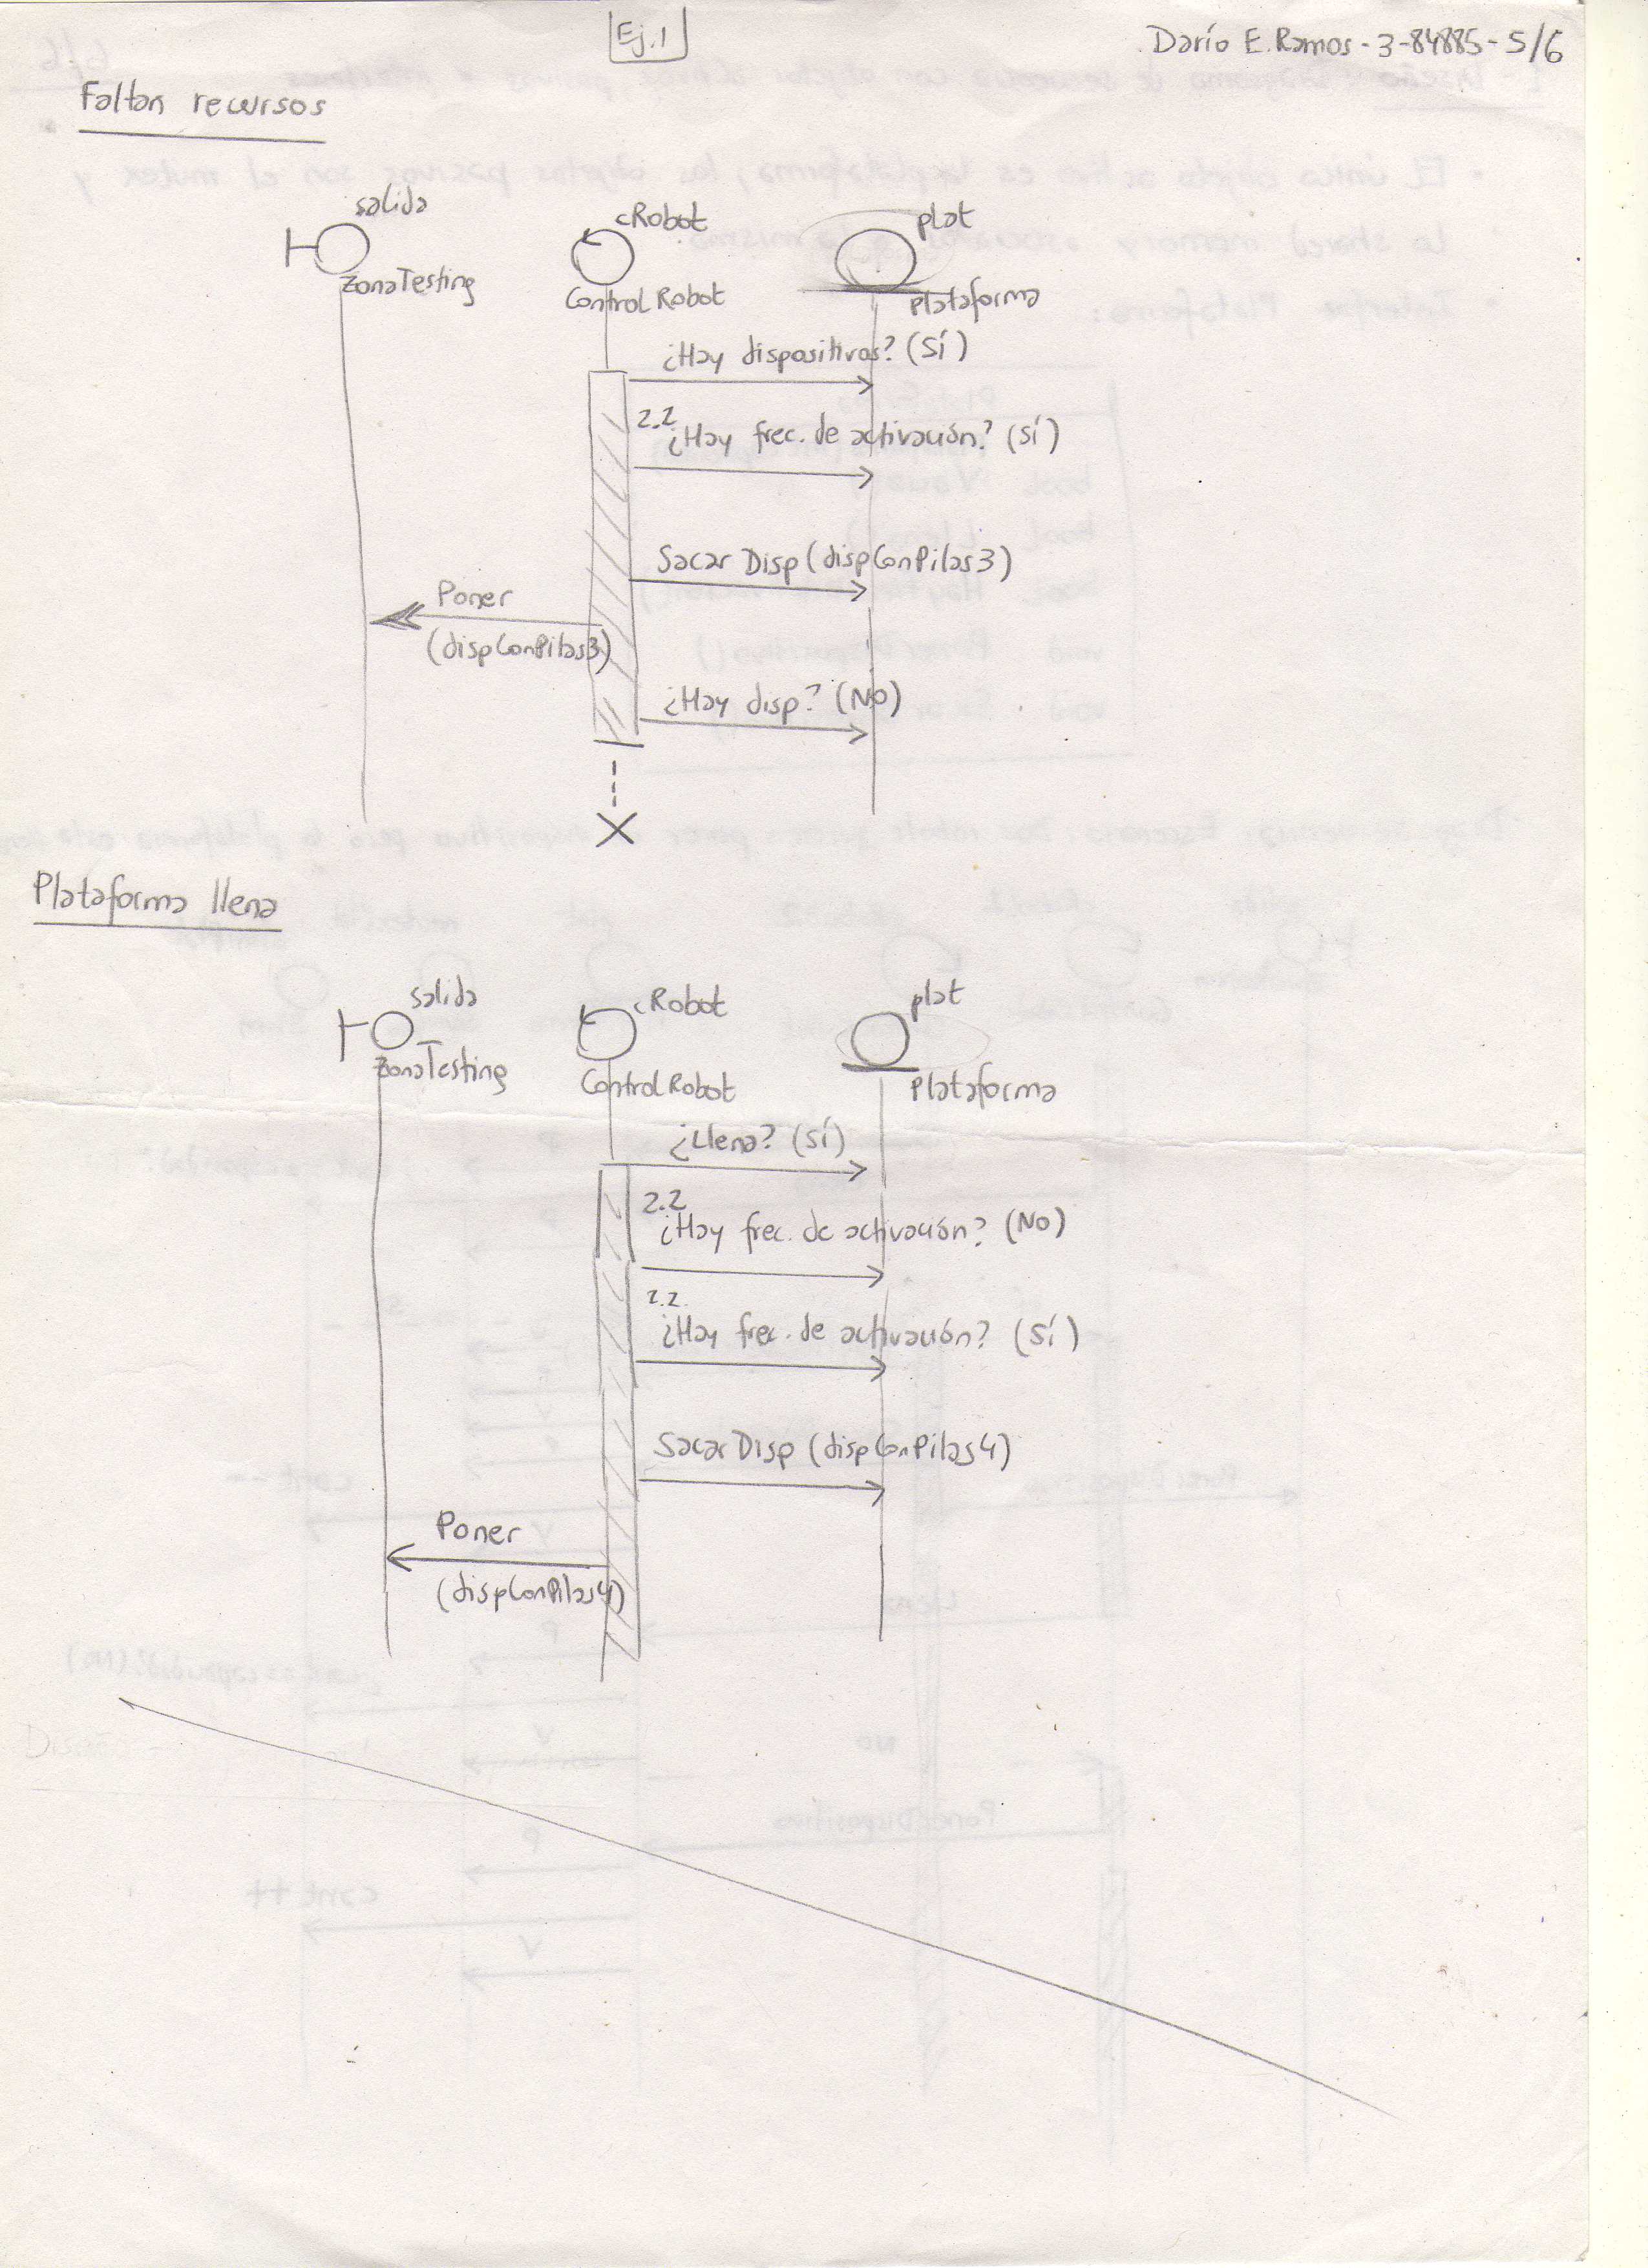 Ej.1
Darío E. Ramos - 3-84885 - 5/6
Faltan recursos
salida
cRobot
plat
ZonaTesting
ControlRobot
Plataforma
¿Hay dispositivos? (Sí)
2.2
¿Hay frec. de activación? (Sí)
SacarDisp (dispConPilas3)
Poner
(dispConPilas3)
¿Hay disp? (No)
Plataforma llena
salida
cRobot
plat
ZonaTesting
ControlRobot
Plataforma
¿Llena? (Sí)
2.2
¿Hay frec. de activación? (No)
2.2.
¿Hay frec. de activación? (Sí)
SacarDisp (dispConPilas4)
Poner
(dispConPilas4)